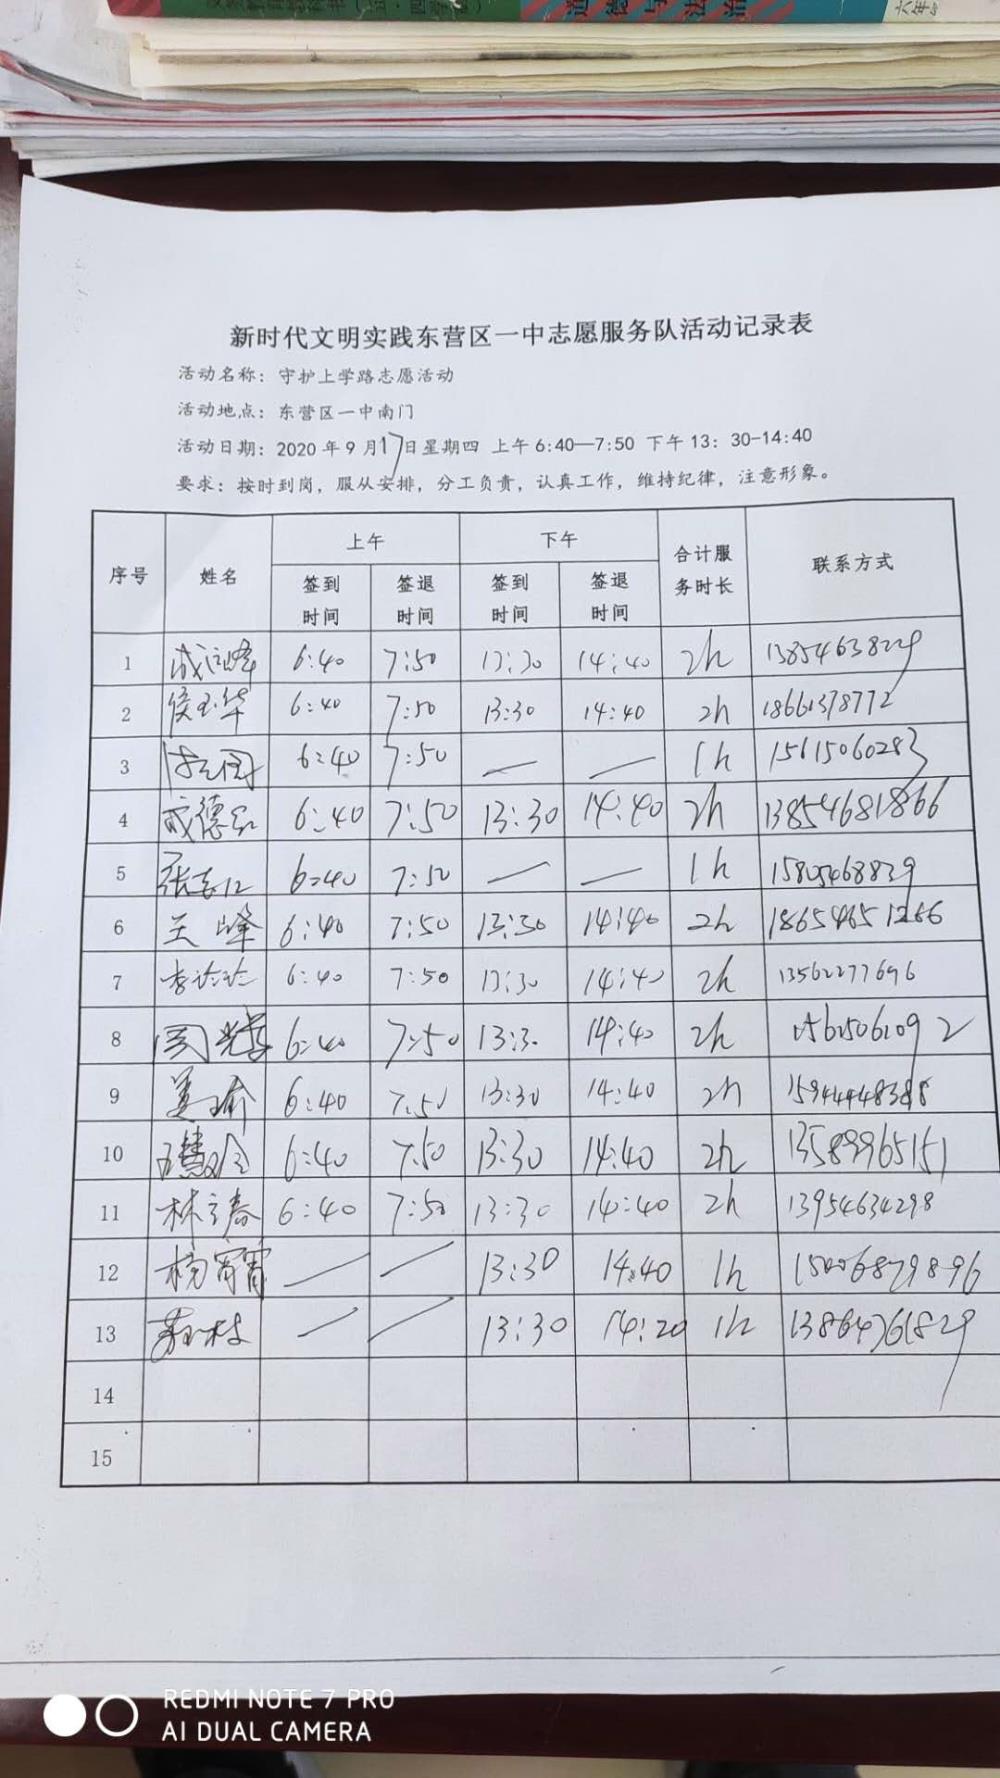 道德与法治
六年
新时代文明实践东营区一中志愿服务队活动记录表
活动名称：守护上学路志愿活动
活动地点：东营区一中南门
活动日期：2020年9月17日星期四 上午6:40—7:50 下午13：30-14:40
要求：按时到岗，服从安排，分工负责，认真工作，维持纪律，注意形象。
序号 姓名 上午 下午 合计服务时长 联系方式
签到时间 签退时间 签到时间 签退时间
1 6:40 7:50 13:30 14:40 2h 13854638229
2 侯玉华 6:40 7:50 13:30 14:40 2h 18661378772
3 6:40 7:50 — — 1h 15615060283
4 成德 6:40 7:50 13:30 14:40 2h 13854681866
5 张志江 6:40 7:50 — — 1h 15805468839
6 王峰 6:40 7:50 13:30 14:40 2h 18654651266
7 李 6:40 7:50 13:30 14:40 2h 13562277696
8 周 6:40 7:50 13:30 14:40 2h
9 姜瑜 6:40 7:50 13:30 14:40 2h
10 6:40 7:50 13:30 14:40 2h 13589965151
11 林立春 6:40 7:50 13:30 14:40 2h 13954634298
12 杨宵宵 — — 13:30 14:40 1h 15006879896
13 — — 13:30 14:20 1h 13864761829
14
15
REDMI NOTE 7 PRO
AI DUAL CAMERA